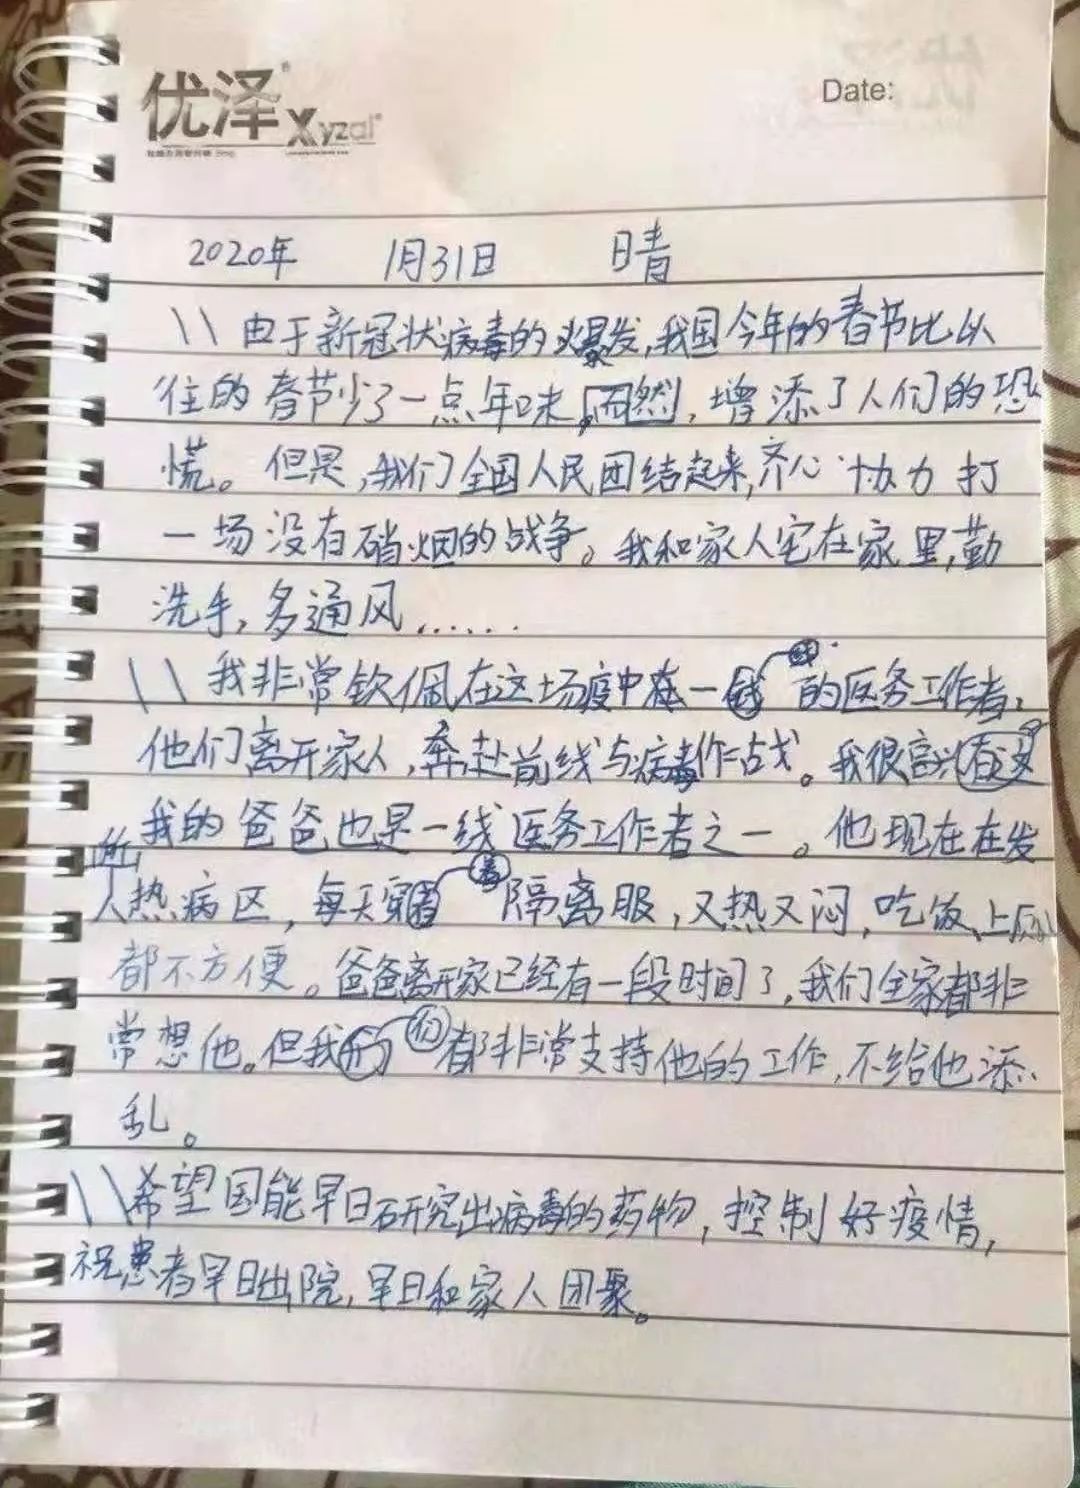 优泽
Xyzal
Date:
2020年 1月31日 晴
\\ 由于新冠状病毒的爆发,我国今年的春节比以
往的春节少了一点年味,而然,增添了人们的恐
慌。但是,我们全国人民团结起来,齐心协力打
一场没有硝烟的战争。我和家人宅在家里,勤
洗手,多通风......
\\ 我非常钦佩在这场疫中在一线的医务工作者,
他们离开家人,奔赴前线与病毒作战。我很高兴
我的爸爸也是一线医务工作者之一。他现在在发
热病区,每天穿着隔离服,又热又闷,吃饭、上厕所
都不方便。爸爸离开家已经有一段时间了,我们全家都非
常想他。但我们都非常支持他的工作,不给他添
乱。
\\希望国能早日研究出病毒的药物,控制好疫情,
祝患者早日出院,早日和家人团聚。